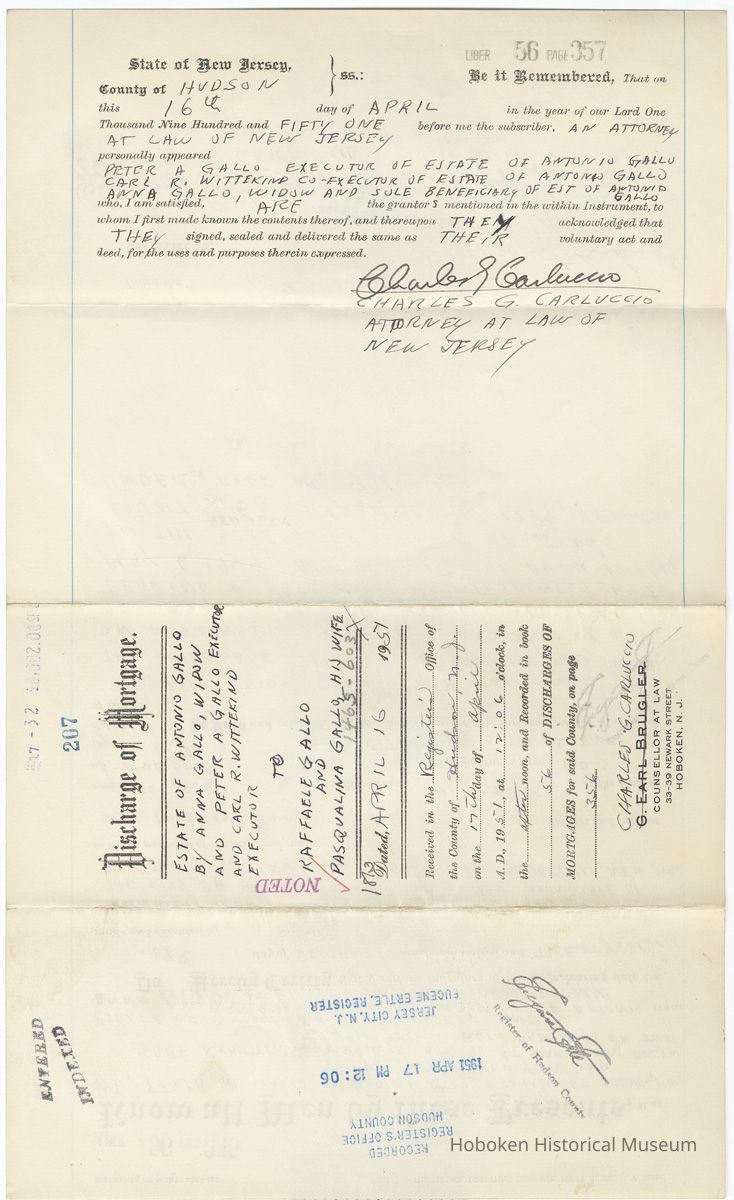 LIBER 56 PAGE 357
State of New Jersey,
County of HUDSON } ss.:
Be it Remembered, That on
this 16th day of APRIL in the year of our Lord One
Thousand Nine Hundred and FIFTY ONE before me the subscriber, AN ATTORNEY
AT LAW OF NEW JERSEY
personally appeared
PETER A GALLO EXECUTOR OF ESTATE OF ANTONIO GALLO
CARL R. WITTEKIND CO-EXECUTOR OF ESTATE OF ANTONIO GALLO
ANNA GALLO, WIDOW AND SOLE BENEFICIARY OF EST OF ANTONIO
GALLO
who, I am satisfied, ARE the grantorS mentioned in the within Instrument, to
whom I first made known the contents thereof, and thereupon THEY acknowledged that
THEY signed, sealed and delivered the same as THEIR voluntary act and
deed, for the uses and purposes therein expressed.
Charles G Carluccio
CHARLES G. CARLUCCIO
ATTORNEY AT LAW OF
NEW JERSEY
207
Discharge of Mortgage.
ESTATE OF ANTONIO GALLO
BY ANNA GALLO, WIDOW
AND PETER A GALLO EXECUTOR
AND CARL R. WITTEKIND
EXECUTOR
TO
RAFFAELE GALLO
AND
PASQUALINA GALLO, HIS WIFE
1465-603
NOTED
Dated, APRIL 16 1951
Received in the Register's Office of
the County of Hudson, N.J.
on the 17th day of April
A.D., 1951, at 12:06 o'clock, in
the after noon, and Recorded in book
56 of DISCHARGES OF
MORTGAGES for said County, on page
356
CHARLES G. CARLUCCIO
G. EARL BRUGLER
COUNSELLOR AT LAW
33-39 NEWARK STREET
HOBOKEN, N. J.
ENTERED
INDEXED
RECORDED
REGISTER'S OFFICE
HUDSON COUNTY
1951 APR 17 PM 12:06
JERSEY CITY, N. J.
EUGENE ERTLE, REGISTER
Register of Hudson County
Hoboken Historical Museum